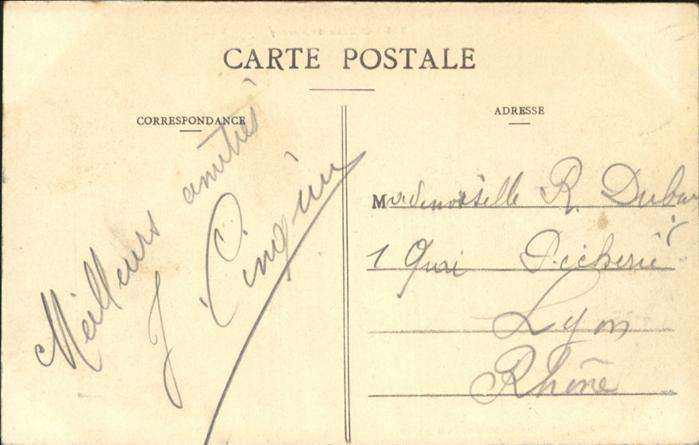 CARTE POSTALE
CORRESPONDANCE
Meilleurs amitiés
J
ADRESSE
Mademoiselle R.
1 Quai Pêcherie
Lyon
Rhône